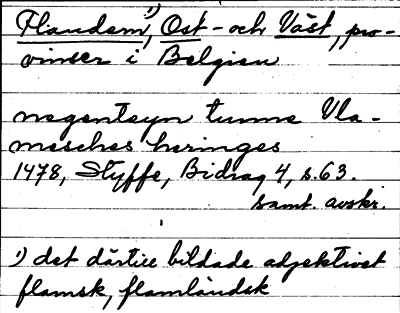 Flandern¹⁾, Ost- och Väst, pro-
vinser i Belgien
negenteyn tunne Vla-
mesches heringes
1478, Styffe, Bidrag 4, s. 63.
samt. avskr.
¹⁾ det därtill bildade adjektivet
flamsk, flamländsk